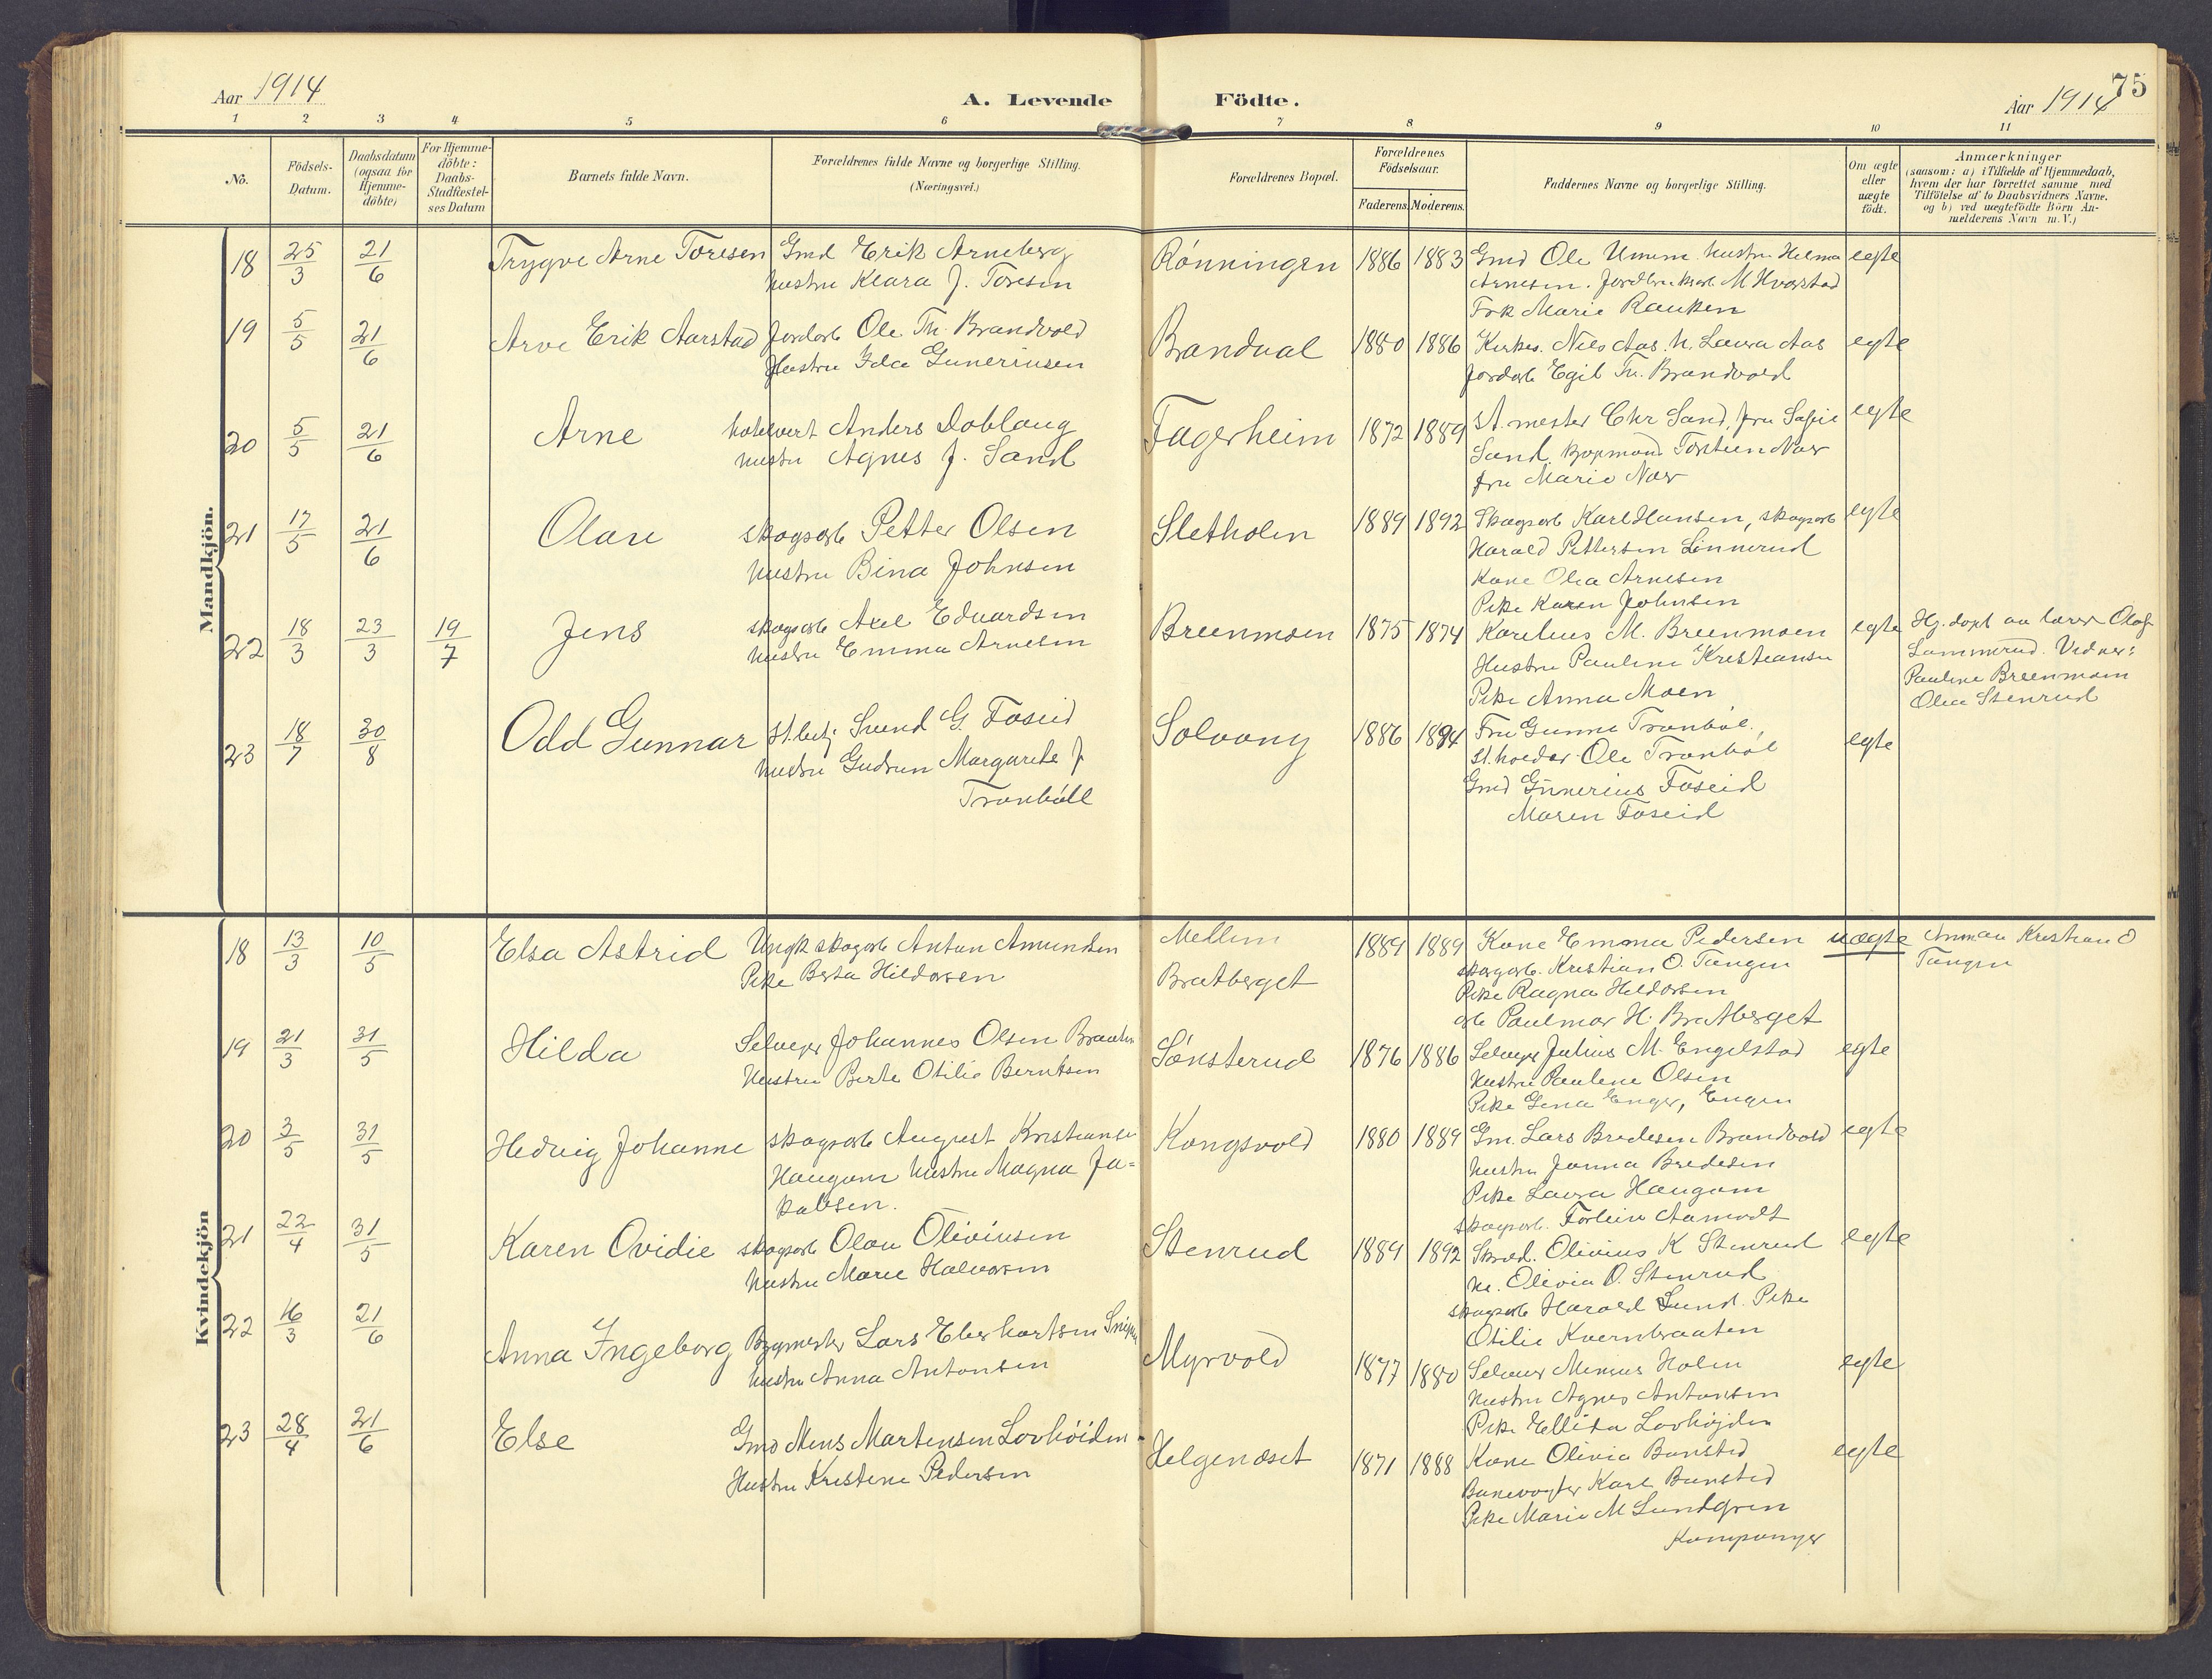 75
Aar 1914
A. Levende Födte.
Aar 1914
1 2 3 4 5 6 7 8 9 10 11
No.
Födsels-
Datum.
Daabsdatum
(ogsaa for
Hjemme-
døbte)
For Hjemme-
døbte:
Daabs-
Stadfæstel-
ses Datum
Barnets fulde Navn.
Forældrenes fulde Navne og borgerlige Stilling.
(Næringsvei.)
Forældrenes Bopæl.
Forældrenes
Födselsaar.
Faderens. Moderens.
Faddernes Navne og borgerlige Stilling.
Om ægte
eller
uægte
födt.
Anmærkninger
(saasom: a) i Tilfælde af Hjemmedaab,
hvem der har forrettet samme med
Tilföielse af to Daabsvidners Navne.
og b) ved uægtefödte Börn An-
melderens Navn m.V.)
Mandkjön.
18 25/3 21/6 Trygve Arne Toresen Gmd Erik Arneberg Rønningen 1886 1883 Gmd Ole Hustru Helma egte
Hustru Klara J. Toresen Arnesen. M Hvarstad
Frk Marie Rauken
19 5/5 21/6 Arve Erik Aarstad Jordarb Ole Th. Brandvold Brandval 1880 1886 Kirkes. Nils Aas. h. Laura Aas egte
Hustru Ida Guneriusen Jordarb Egil Th. Brandvold
20 5/5 21/6 Arne hotelvert Anders Doblaug Fagerheim 1872 1889 St.mester Chr Sand, fru Sofie egte
Hustru Agnes J. Sand Sand. Torstein Nær
fru Marie Nær
21 17/5 21/6 Olav skogsarb Petter Olsen Sletholen 1889 1892 Skogsarb Karl Hansen, skogsarb egte
Hustru Bina Johnsen Harald Pettersen Linnerud
Kone Olea Arnesen
Pike Karen Johnsen
22 18/3 23/3 19/7 Jens skogsarb Axel Edvardsen Breenmoen 1875 1874 Karelius M. Breenmoen egte Hj. døpt av lærer Olaf
Hustru Emma Arnesen Hustru Pauline Kristiansen Lammerud. Vidner:
Pike Anna Moen Pauline Breenmoen
Olea Stenrud
23 18/7 30/8 Odd Gunnar St.betj Svend G. Foseid Solvang 1886 1894 Fru Gunna Tranbøl. egte
Hustru Gudrun Margarete J Ole Tranbøl
Tranbøll Gmd Gunerius Foseid
Maren Foseid
Kvindekjön
18 13/3 10/5 Elsa Astrid Ungk skogarb Anton Amundsen Mellem 1889 1889 Kone Emma Pedersen uægte Anm av Kristian O
Pike Berta Hildorsen Bratberget skogarb. Kristian O. Tangen Tangen
Pike Ragna Hildorsen
arb Paulmar H. Bratberget
19 21/3 31/5 Hilda Selveier Johannes Olsen Sønsterud 1876 1886 Selveier Julius M. Engelstad egte
Hustru Berte Otilie Berntsen Hustru Pauline Olsen
Pike Gina Enger, Engen
20 3/5 31/5 Hedvig Johanne skogsarb August Kristiansen Kongsvold 1880 1889 Gm. Lars Bredesen Brandvold egte
Haugom hustru Magna Ja= Hustru Janna Bredesen
kobsen. Pike Laura Haugom
skogsarb. Aamodt
21 22/4 31/5 Karen Ovidie skogsarb Olav Oliviusen Stenrud 1889 1892 Olivius K Stenrud egte
Hustru Marie Halvorsen hu. Olivia O. Stenrud
skogsarb Harald Lund. Pike
Otilie Kvernbraaten
22 16/3 21/6 Anna Ingeborg Bygmester Lars Eberhartsen Myrvold 1877 1880 Selveier Menius Holen egte
Hustru Anna Antonsen Hustru Agnes Antonsen
Pike Ellida Lovhøjden
23 28/4 21/6 Else Gmd Mens Martensen Lovhöiden Helgenæset 1871 1888 Kone Olivia Bunsted egte
Hustru Kristene Pedersen Banevogter Karl Bunsted
Pike Marie M Lundgren